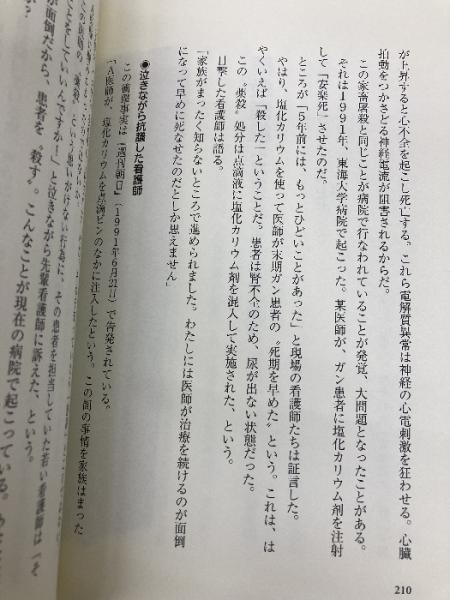 が上昇すると心不全を起こし死亡する。これら電解質異常は神経の心電刺激を狂わせる。心臓
拍動をつかさどる神経電流が阻害されるからだ。
この家畜屠殺と同じことが病院で行なわれていることが発覚、大問題となったことがある。
それは1991年、東海大学病院で起こった。某医師が、ガン患者に塩化カリウム剤を注射
して「安楽死」させたのだ。
ところが「5年前には、もっとひどいことがあった」と現場の看護師たちは証言した。
やはり、塩化カリウムを使って医師が末期ガン患者の〝死期を早めた〟という。これは、は
やくいえば「殺した」ということだ。患者は腎不全のため、尿が出ない状態だった。
この〝薬殺〟処分は点滴液に塩化カリウム剤を混入して実施された、という。
目撃した看護師は語る。
「家族がまったく知らないところで進められました。わたしには医師が治療を続けるのが面倒
になって早めに死なせたのだとしか思えません」
●泣きながら抗議した看護師
この衝撃事実は『週刊朝日』(1991年6月21日)で告発されている。
「A医師が、塩化カリウムを点滴ビンのなかに注入したという。この間の事情を家族はまった
い行為に、その患者を担当していた若い看護師は「そ
んなことをしていいんですか!」と泣きながら先輩看護師に訴えた、という。
が面倒だから、患者を〝殺す〟。こんなことが現在の病院で起こっている。
210